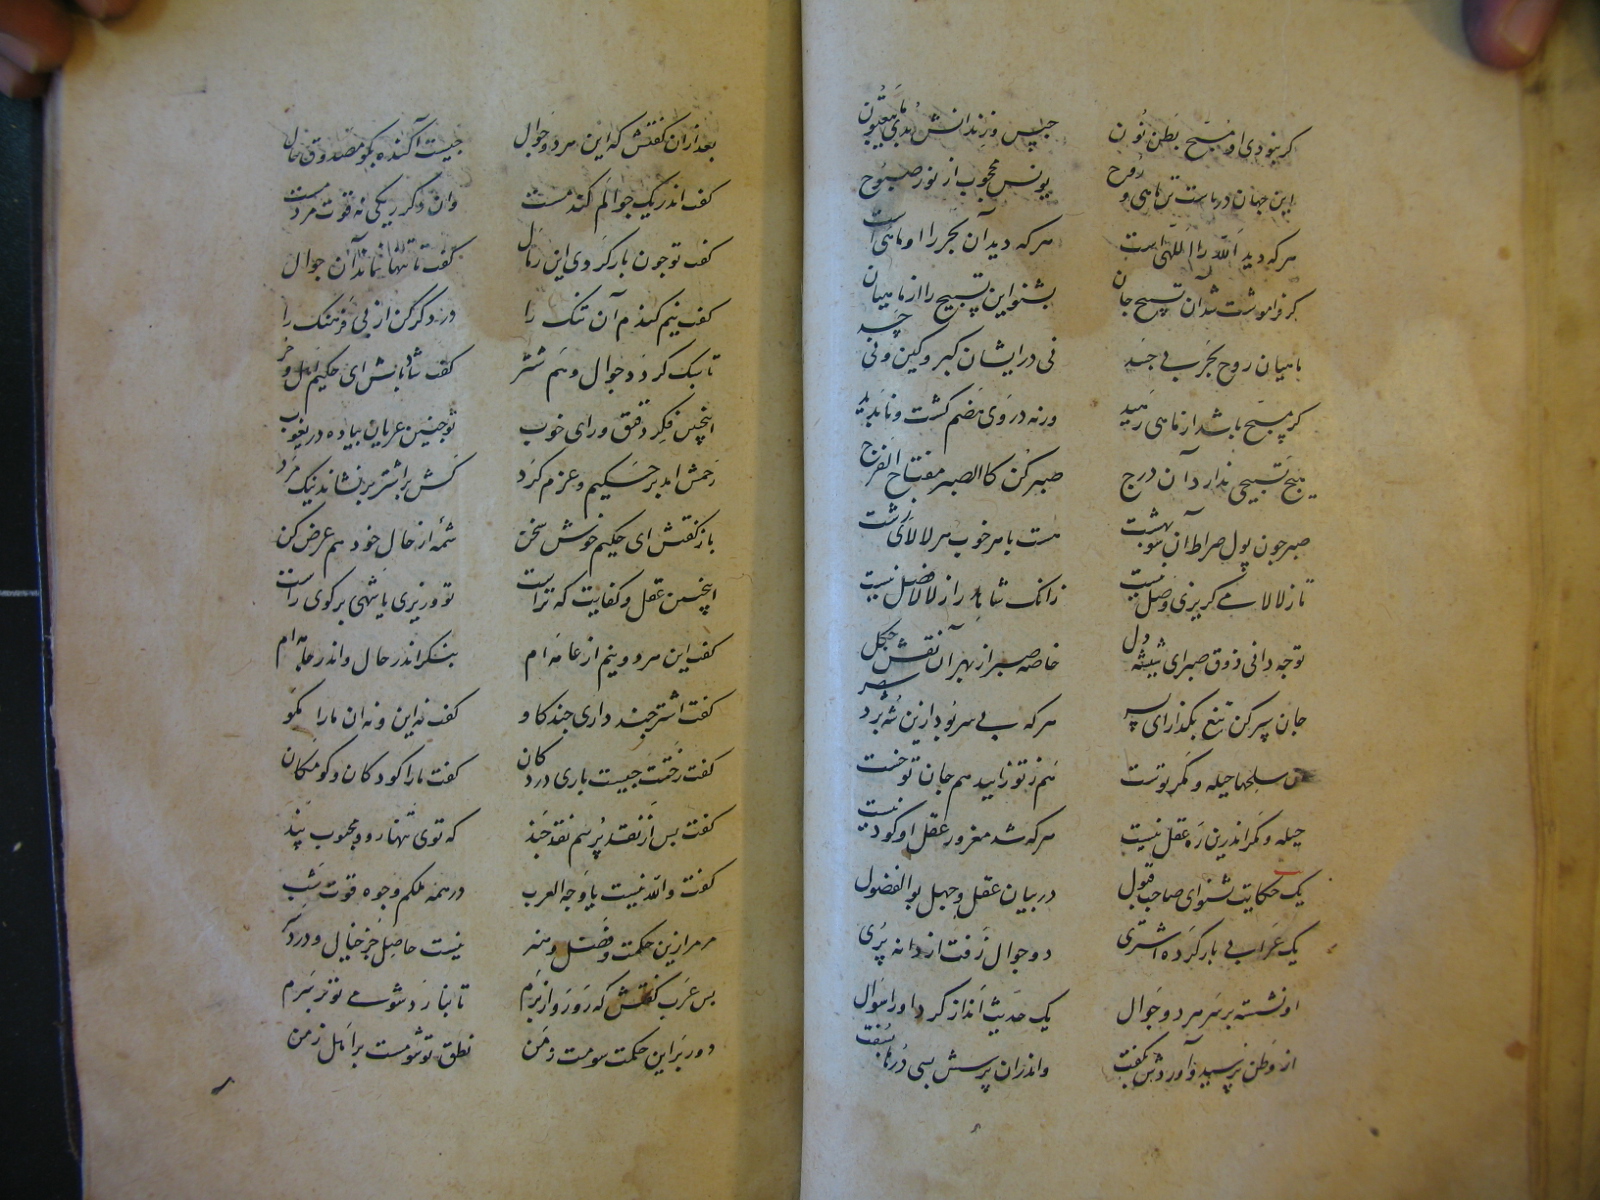 کر نبودی او مسبح بطن نون حبس و زندانش بدی تا یبعثون
این جهان دریاست تن ماهی و روح یونس محجوب از نور صبوح
هر که دید الله را اللهی است هر که دید آن بحر را او ماهی است
کر فراموشت شد آن تسبیح جان بشنو این تسبیح را از ماهیان
ماهیان روح بحر بی جسد نی در ایشان کبر و کین و نی
کر مسبح باشد از ماهی رهید ورنه در وی هضم کشت و ناپدید
هیچ تسبیحی ندارد آن درج صبر کن کالصبر مفتاح الفرج
صبر جون پول صراط آن سو بهشت هست با هر خوب هر لالای زشت
تا ز لالا می کریزی وصل نیست زانک شاهد را ز لالا فصل نیست
تو جه دانی ذوق صبر ای شیشه دل خاصه صبر از بهر آن نقش جکل
جان سپر کن تیغ بکذار ای پسر هر که بی سر بود ازین شه برد سر
آن سلحها حیله و مکر توست هم ز تو زایید هم جان تو خست
حیله و مکر اندرین ره عقل نیست هر که شد مغرور عقل او کودنیست
یک حکایت بشنو ای صاحب قبول در بیان عقل و جهل بوالفضول
یک عرابی بار کرده اشتری دو جوال زفت از دانه پری
او نشسته بر سر هر دو جوال یک حدیث انداز کرد او را سؤال
از وطن پرسید و آوردش بکفت واندران پرسش بسی درها بسفت
بعد ازان کفتش که این هر دو جوال جیست آکنده بکو مصدوق حال
کفت اندر یک جوالم کندمست وان دکر ریکی نه قوت مردمست
کفت تو جون بار کردی این رمال کفت تا تنها نماند آن جوال
کفت نیم کندم آن تنک را در دکر کن از پی فرهنک را
تا سبک کردد جوال و هم شتر کفت شاباش ای حکیم اهل و حر
اینجنین فکر دقیق و رای خوب تو جنین عریان پیاده در لغوب
رحمش امد بر حکیم و عزم کرد کش بر اشتر برنشاند نیک مرد
باز کفتش ای حکیم خوش سخن شمه از حال خود هم عرض کن
اینجنین عقل و کفایت که تراست تو وزیری یا شهی برکوی راست
کفت این هر دو نیم از عامه ام بنکر اندر حال و اندر جامه ام
کفت اشتر جند داری جند کاو کفت نه این و نه ان ما را مکاو
کفت رختت جیست باری در دکان کفت ما را کو دکان و کو مکان
کفت بس از نقد پرسم نقد جند که توی تنها رو و محبوب پند
کفت والله نیست یا وجه العرب در همه ملکم وجوه قوت شب
مر مرا زین حکمت و فضل و هنر نیست حاصل جز خیال و درد
بس عرب کفتش که رو رو از برم تا نبارد شومی تو بر سرم
دور بر این حکمت شومت ز من نطق تو شومست بر اهل زمن